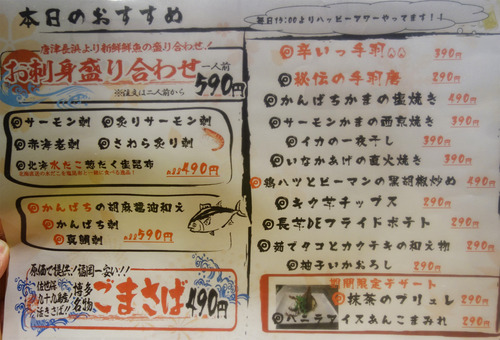 本日のおすすめ
毎日19:00よりハッピーアワーやってます!!
唐津長浜より新鮮鮮魚の盛り合わせ!
お刺身盛り合わせ 一人前 590円
※注文は二人前から
サーモン刺 炙りサーモン刺
赤海老刺 さわら炙り刺
北海水だこ 塩だく塩昆布
各490円
かんぱちの胡麻醤油和え
かんぱち刺
真鯛刺 各590円
原価で提供!福岡一安い!!
博多名物 ごまさば 490円
辛いっ手羽 390円
秘伝の手羽唐 290円
かんぱちかまの塩焼き 490円
サーモンかまの西京焼き 390円
イカの一夜干し 390円
いなかあげの直火焼き 390円
鶏ハツとピーマンの黒胡椒炒め 490円
キクチャチップス 290円
長芋DEフライドポテト 290円
茹でタコとカクテキの和え物 290円
柚子いかおろし 290円
期間限定デザート
抹茶のブリュレ 290円
バニラアイスあんこまみれ 290円